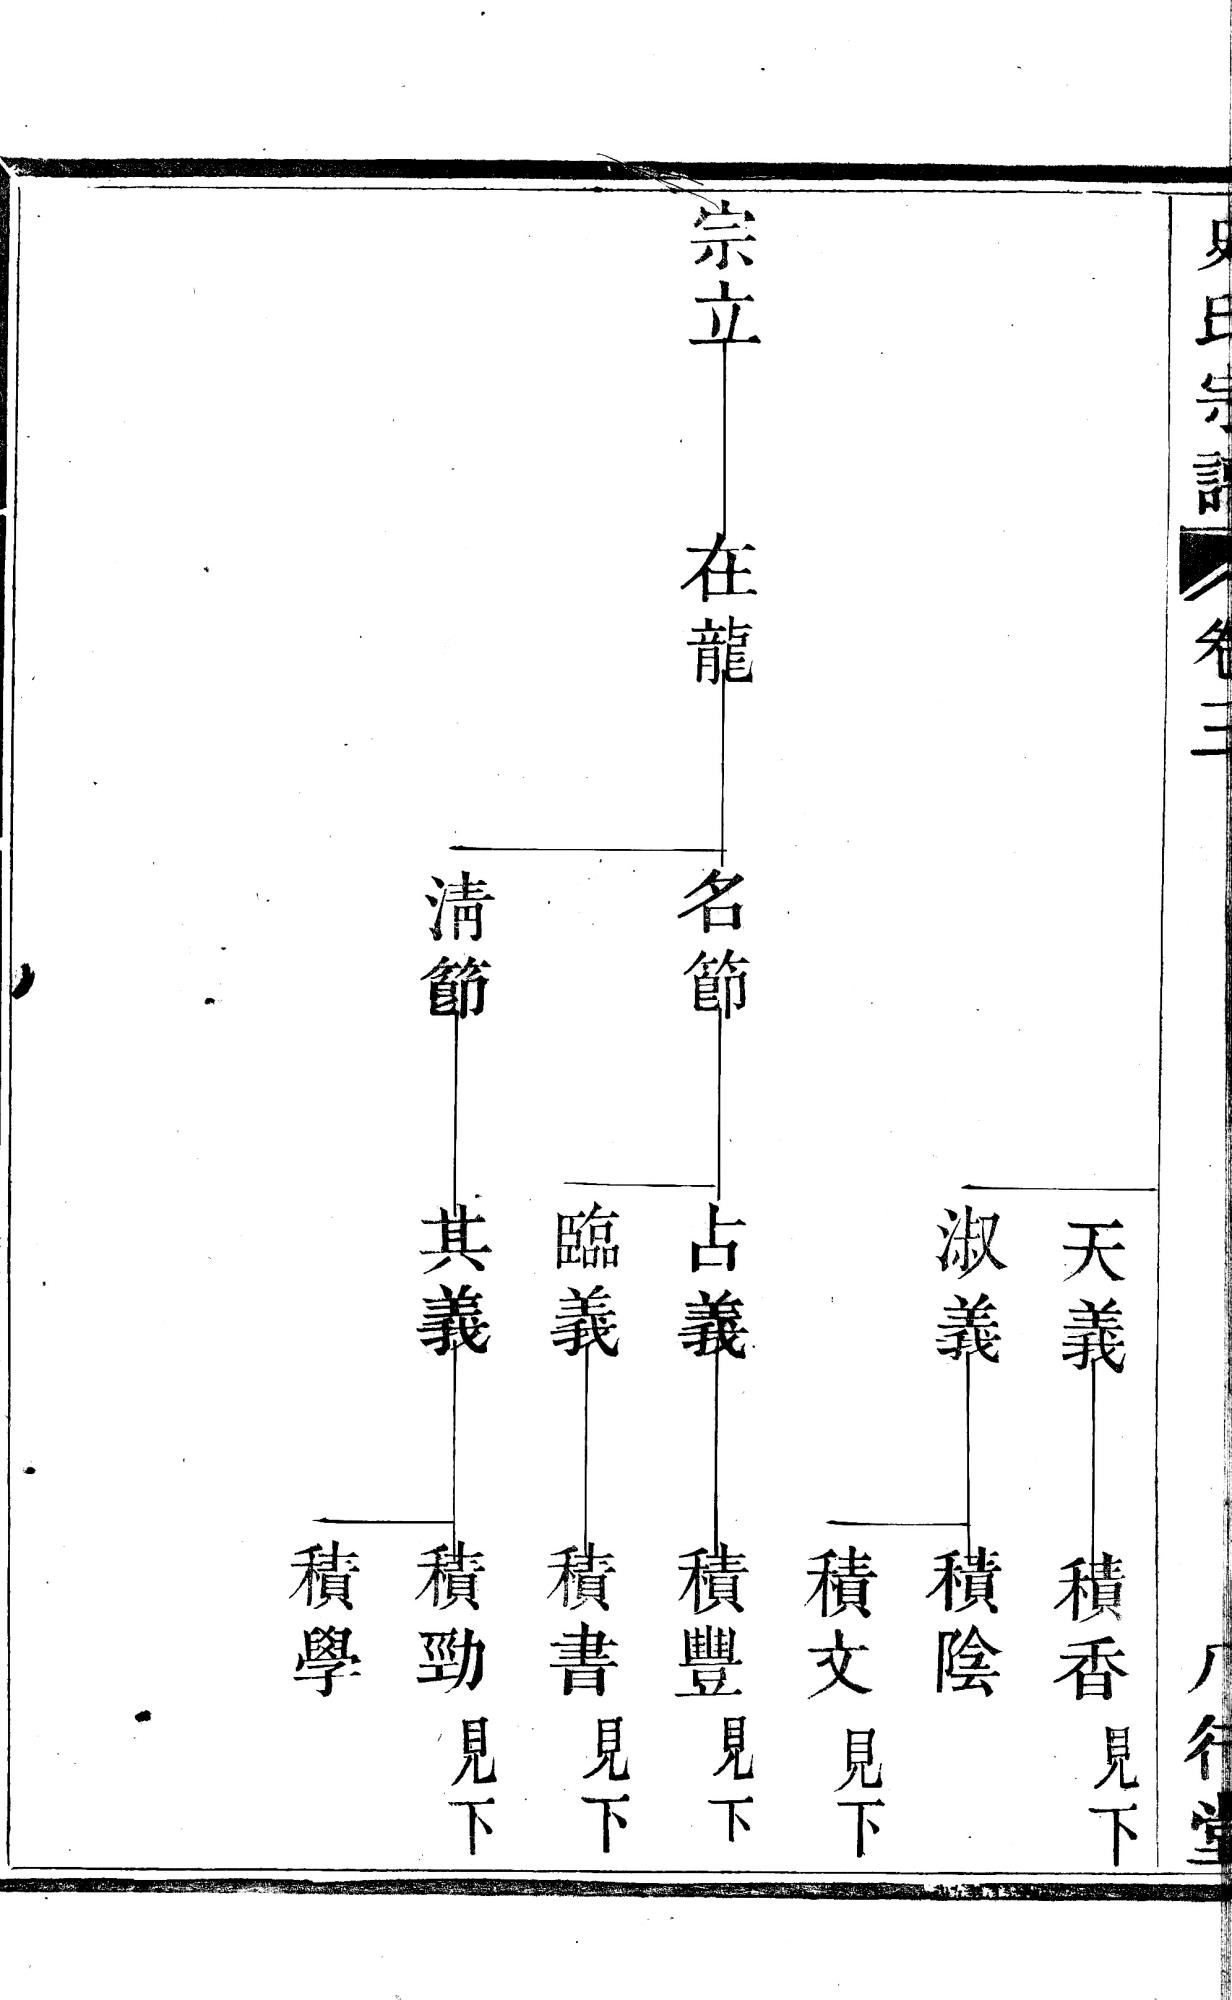 史氏宗譜 卷三 八行堂
天義 積香 見下
淑義 積陰
積文 見下
宗立 在龍 名節 占義 積豐 見下
臨義 積書 見下
淸節 其義 積勁 見下
積學